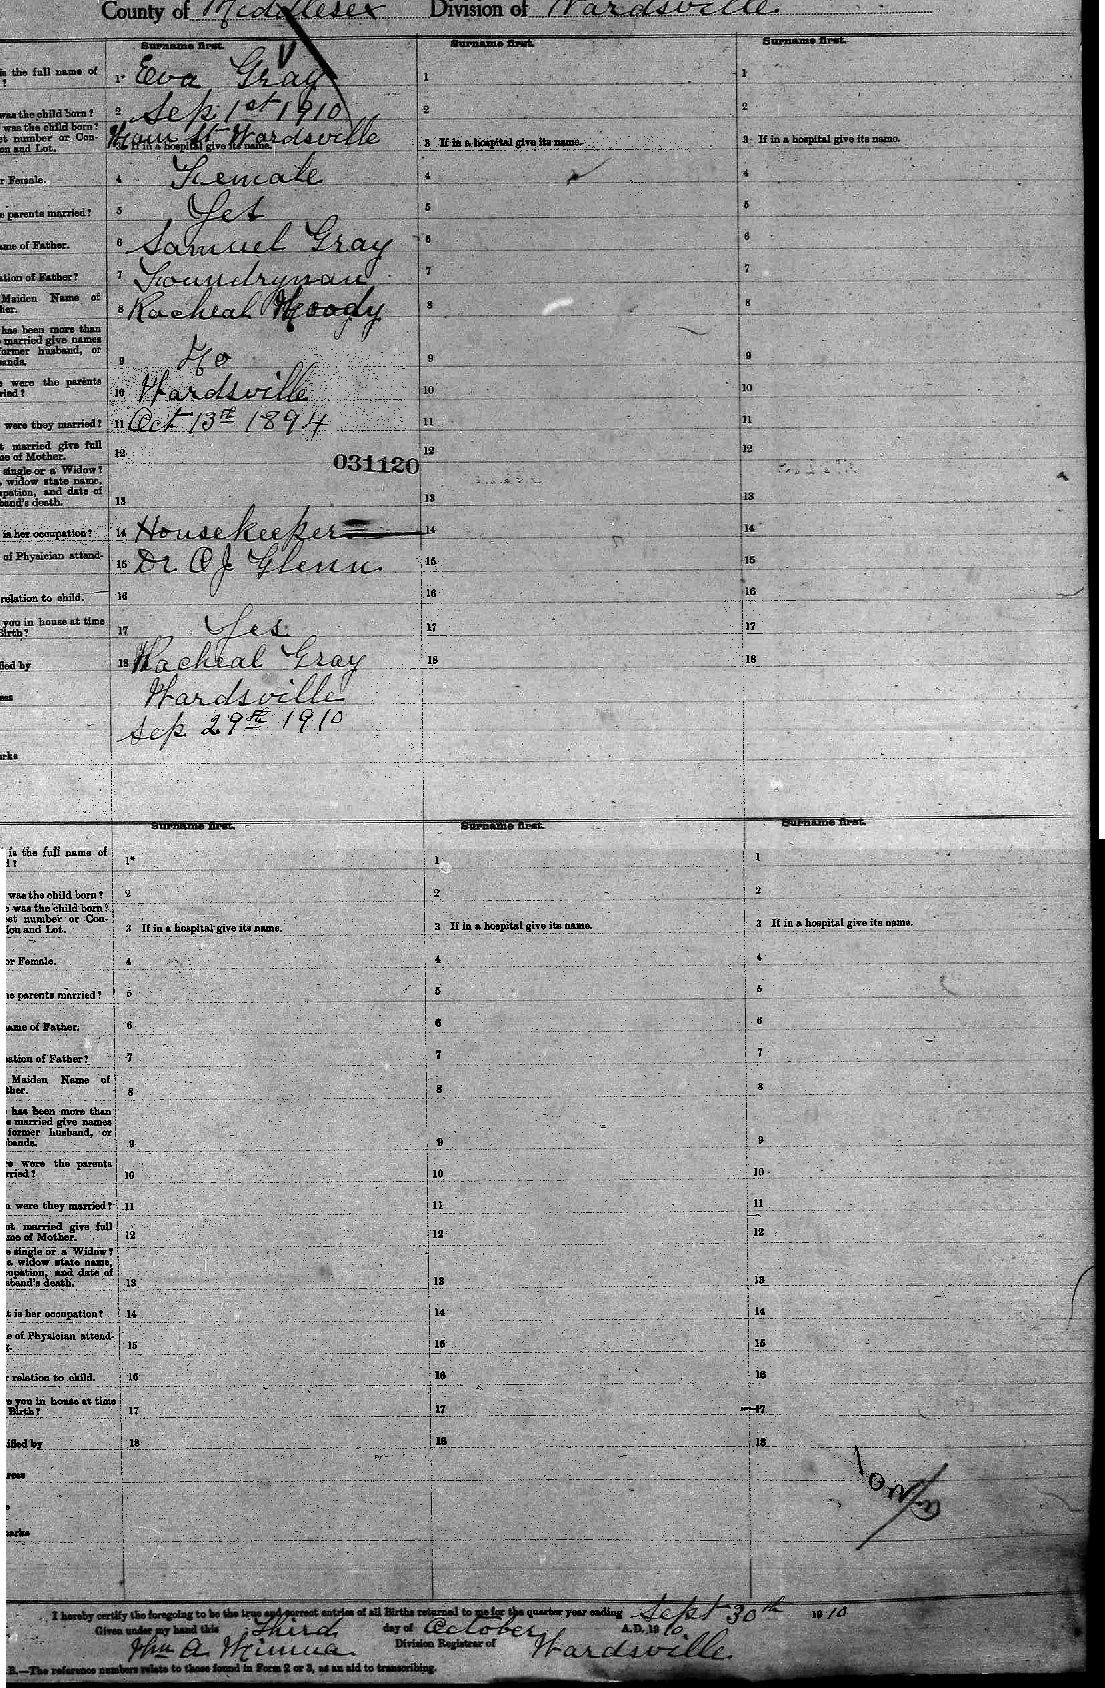 County of Middlesex Division of Wardsville
Surname first. Surname first. Surname first.
is the full name of
? 1* Eva Gray 1 1
was the child born? 2 Sep 1st 1910 2 2
was the child born?
et number or Con-
on and Lot. Main St Wardsville
3 If in a hospital give its name. 3 If in a hospital give its name. 3 If in a hospital give its name.
r Female. 4 Female 4 4
e parents married? 5 Yes 5 5
ame of Father. 6 Samuel Gray 6 6
tion of Father? 7 Foundryman 7 7
Maiden Name of
her. 8 Racheal Moody 8 8
has been more than
married give names
former husband, or
bands. 9 No 9 9
were the parents
ried? 10 Wardsville 10 10
were they married? 11 Oct 13th 1894 11 11
t married give full
me of Mother. 12 12 12
031120
single or a Widow?
widow state name,
upation, and date of
band's death. 13 13 13
is her occupation? 14 Housekeeper 14 14
of Physician attend- 15 Dr C J Glenn 15 15
relation to child. 16 16 16
you in house at time
Birth? 17 Yes 17 17
fied by 18 Racheal Gray 18 18
ess Wardsville
Sep 29th 1910
arks
Surname first. Surname first. Surname first.
is the full name of
1? 1* 1 1
was the child born? 2 2 2
was the child born?
et number or Con-
ion and Lot. 3 If in a hospital give its name. 3 If in a hospital give its name. 3 If in a hospital give its name.
or Female. 4 4 4
e parents married? 5 5 5
ame of Father. 6 6 6
ation of Father? 7 7 7
Maiden Name of
ther. 8 8 8
has been more than
e married give names
former husband, or
bands. 9 9 9
re were the parents
rried? 10 10 10
n were they married? 11 11 11
ot married give full
me of Mother. 12 12 12
e single or a Widow?
a widow state name,
cupation, and date of
sband's death. 13 13 13
t is her occupation? 14 14 14
e of Physician attend- 15 15 15
r relation to child. 16 16 16
e you in house at time
Birth? 17 17 17
ified by 18 18 18
ress
arks
I hereby certify the foregoing to be the true and correct entries of all Births returned to me for the quarter year ending Sept 30th 1910
Given under my hand this Third day of October A.D. 1910
Wm A. Division Registrar of Wardsville
B.—The reference numbers relate to those found in Form 2 or 3, as an aid to transcribing.